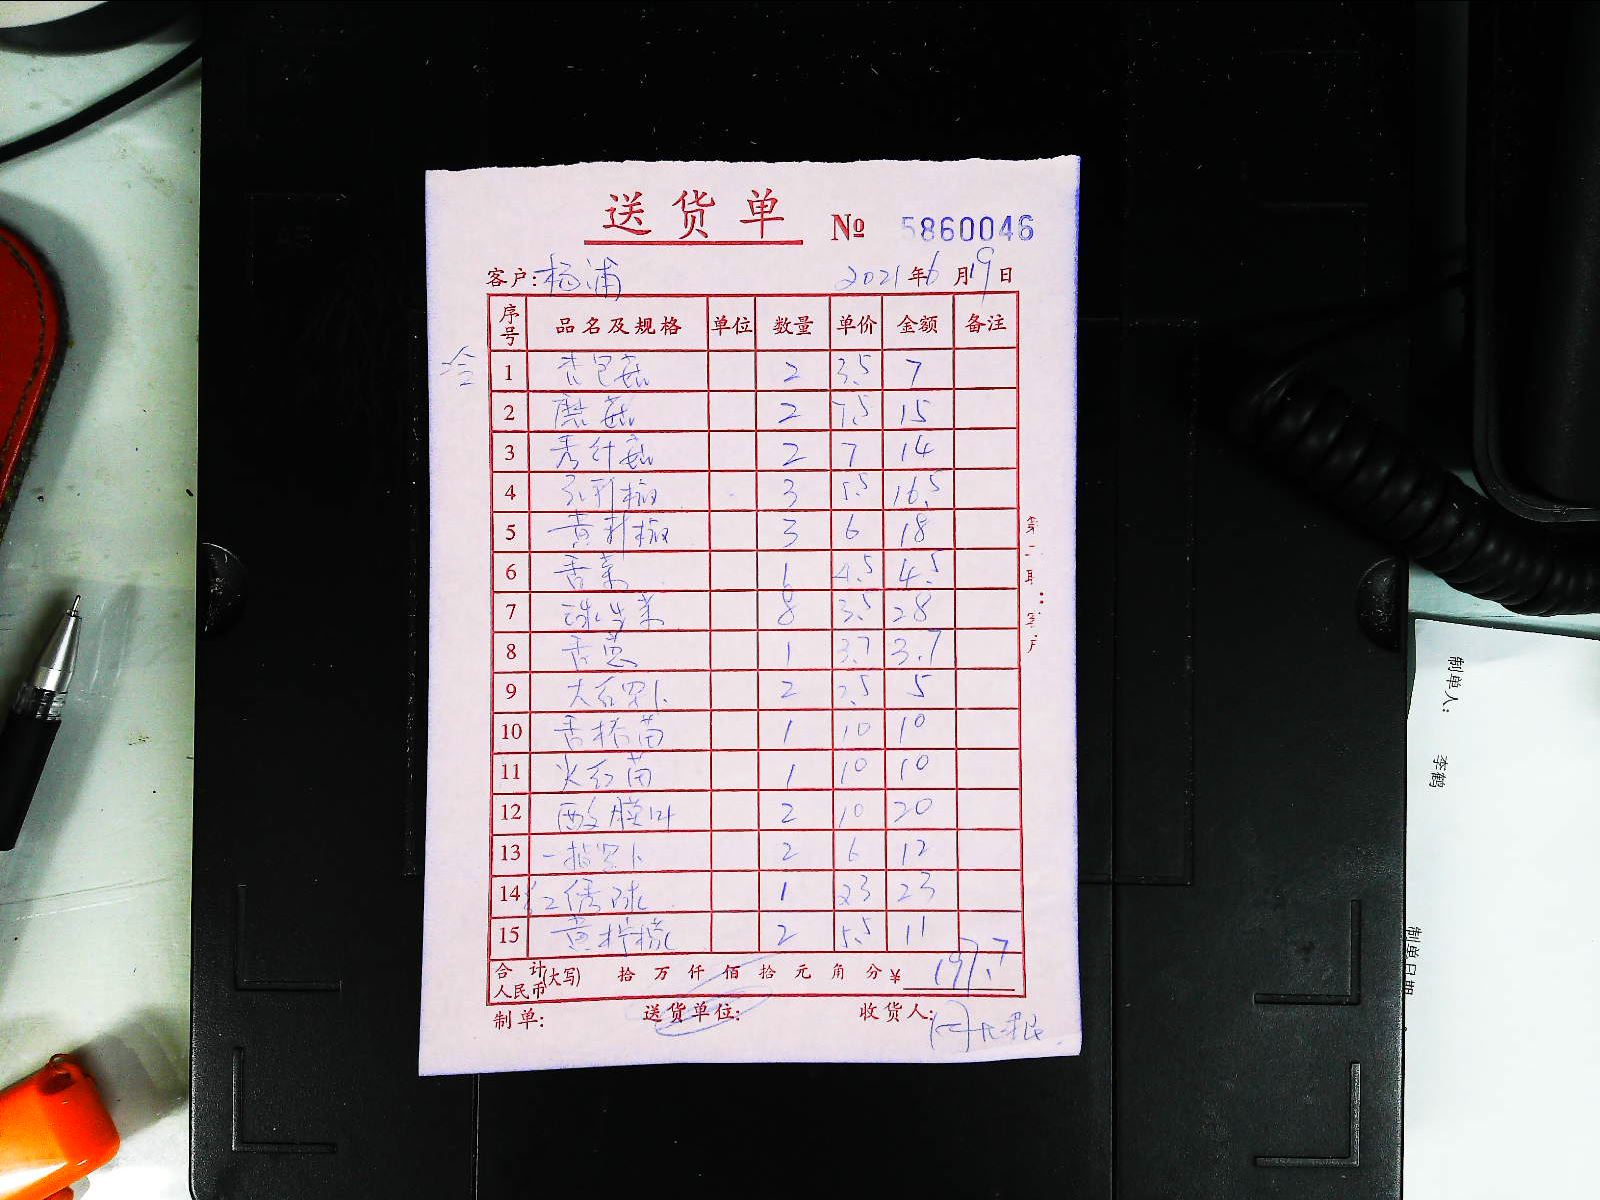 送货单 № 5860046
客户: 杨浦 2021年6月19日
序号 品名及规格 单位 数量 单价 金额 备注
冷
1 杏包菇 2 3.5 7
2 蘑菇 2 7.5 15
3 秀针菇 2 7 14
4 3 5.5 16.5
5 黄利椒 3 6 18
6 香菜 1 4.5 4.5
7 球生菜 8 3.5 28
8 香葱 1 3.7 3.7
9 大红罗卜 2 2.5 5
10 香椿苗 1 10 10
11 火红苗 1 10 10
12 酸膜叶 2 10 20
13 一指罗卜 2 6 12
14 红绣球 1 23 23
15 黄柠檬 2 5.5 11
合计人民币(大写) 拾 万 仟 佰 拾 元 角 分 ¥ 197.7
制单: 送货单位: 收货人:
第二联:客户
制单人: 李鹤
制单日期